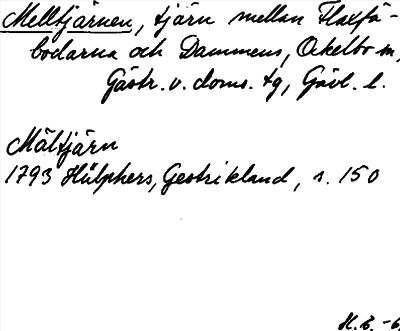 Melltjärnen, tjärn mellan Flaxfä-
bodarna och Dammens, Ockelbo sn,
Gästr. v. doms. tg, Gävl. l.
Mältjärn
1793 Hülphers, Gestrikland, s. 150